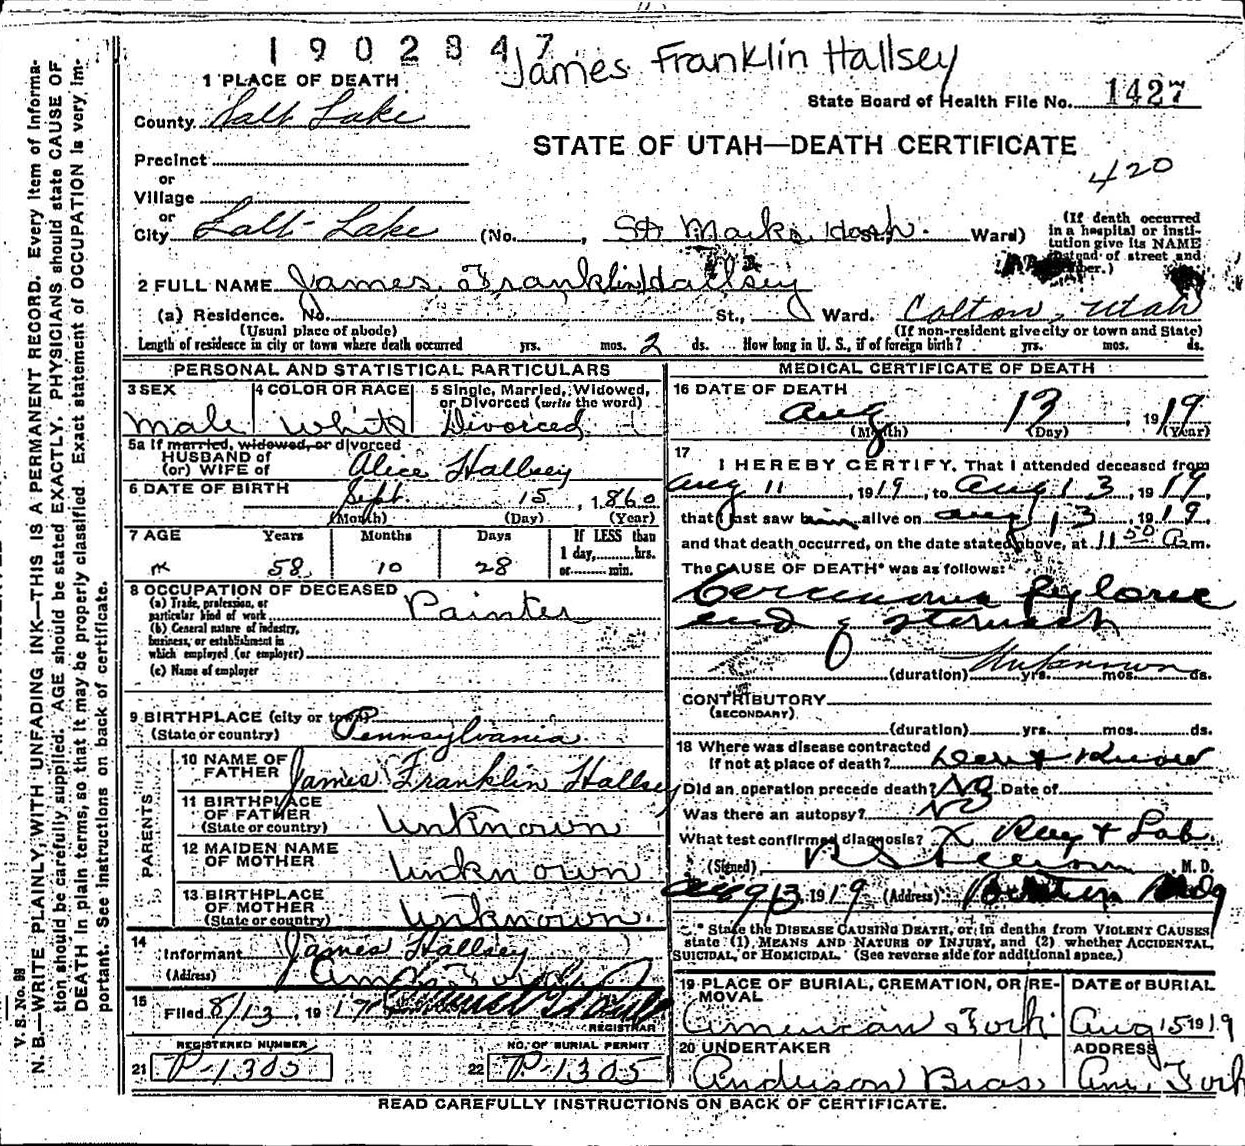 1902847
James Franklin Hallsey
1 PLACE OF DEATH
State Board of Health File No. 1427
County Salt Lake
STATE OF UTAH—DEATH CERTIFICATE
420
Precinct
or
Village
or
City Salt Lake (No. , St Marks Hosp. St., Ward)
(If death occurred in a hospital or institution give its NAME instead of street and number.)
2 FULL NAME James Franklin Hallsey
(a) Residence. No. St., Ward. Colton, Utah
(Usual place of abode) (If non-resident give city or town and State)
Length of residence in city or town where death occurred yrs. mos. 2 ds. How long in U. S., if of foreign birth? yrs. mos. ds.
PERSONAL AND STATISTICAL PARTICULARS
3 SEX male
4 COLOR OR RACE White
5 Single, Married, Widowed, or Divorced (write the word) Divorced
5a If married, widowed, or divorced
HUSBAND of
(or) WIFE of Alice Hallsey
6 DATE OF BIRTH Sept. 15, 1860
(Month) (Day) (Year)
7 AGE Years 58 Months 10 Days 28
If LESS than
1 day, hrs.
or min.
8 OCCUPATION OF DECEASED
(a) Trade, profession, or particular kind of work Painter
(b) General nature of industry, business, or establishment in which employed (or employer)
(c) Name of employer
9 BIRTHPLACE (city or town)
(State or country) Pennsylvania
PARENTS
10 NAME OF FATHER James Franklin Hallsey
11 BIRTHPLACE OF FATHER
(State or country) Unknown
12 MAIDEN NAME OF MOTHER Unknown
13 BIRTHPLACE OF MOTHER
(State or country) Unknown.
14
Informant James Hallsey
(Address) Am
15
Filed 8/13, 19
REGISTRAR
REGISTERED NUMBER
21 P-1305
NO. OF BURIAL PERMIT
22 P-1305
MEDICAL CERTIFICATE OF DEATH
16 DATE OF DEATH
Aug 13, 1919
(Month) (Day) (Year)
17
I HEREBY CERTIFY, That I attended deceased from
Aug 11, 1919, to Aug 13, 1919,
that I last saw him alive on Aug 13, 1919,
and that death occurred, on the date stated above, at 11 50 a.m.
The CAUSE OF DEATH* was as follows:
Carcinoma pyloric
end of stomach
Unknown
(duration) yrs. mos. ds.
CONTRIBUTORY
(SECONDARY)
(duration) yrs. mos. ds.
18 Where was disease contracted
If not at place of death? Don't Know
Did an operation precede death? No Date of
Was there an autopsy? No
What test confirmed diagnosis? X Ray + Lab.
(Signed) M. D.
Aug 13, 1919 (Address) Bldg
* State the DISEASE CAUSING DEATH, or, in deaths from VIOLENT CAUSES, state (1) MEANS AND NATURE OF INJURY, and (2) whether ACCIDENTAL, SUICIDAL, or HOMICIDAL. (See reverse side for additional space.)
19 PLACE OF BURIAL, CREMATION, OR REMOVAL
American Fork
DATE of BURIAL
Aug 15 1919
20 UNDERTAKER
Anderson Bros
ADDRESS
Am. Fork
READ CAREFULLY INSTRUCTIONS ON BACK OF CERTIFICATE.
V. S. No. 98
N. B.—WRITE PLAINLY, WITH UNFADING INK—THIS IS A PERMANENT RECORD. Every item of information should be carefully supplied. AGE should be stated EXACTLY. PHYSICIANS should state CAUSE OF DEATH in plain terms, so that it may be properly classified. Exact statement of OCCUPATION is very important. See instructions on back of certificate.